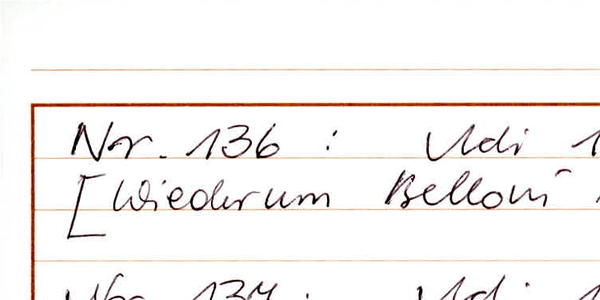 Nr. 136 : Udi 1
[Wiederum Belloni
Nr. 137 : Udi 1